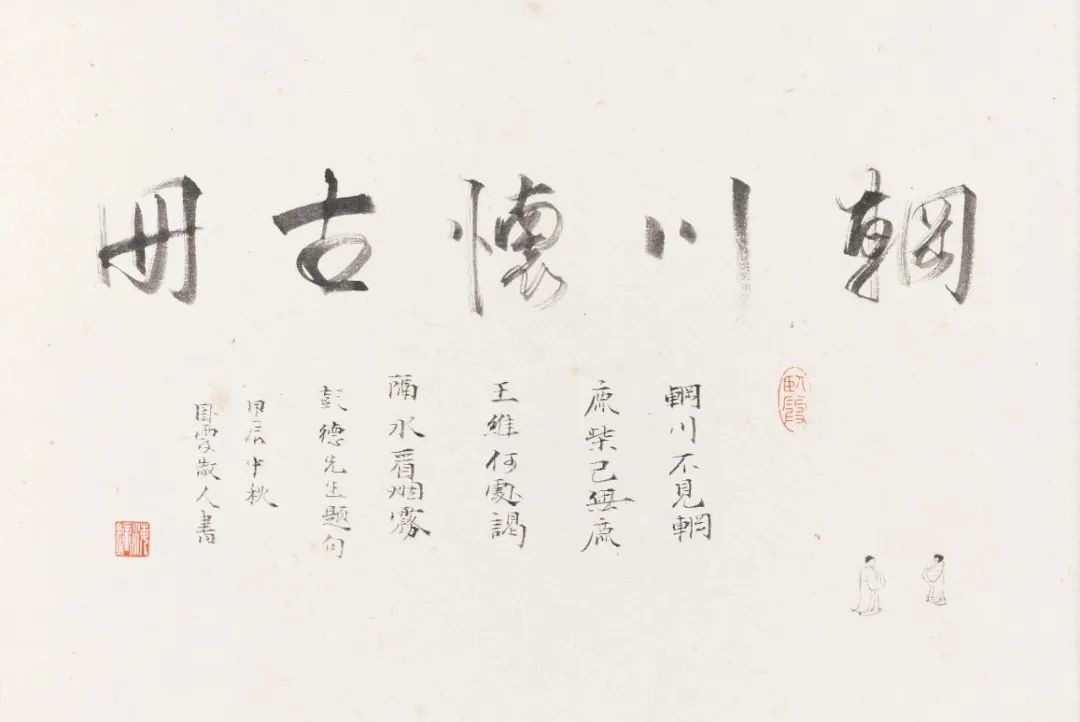 輞川懷古冊
臥霞
輞川不見輞
鹿柴已無鹿
王維何處謁
隔水看烟霧
彭德先生題句
甲辰中秋
臥霞散人書